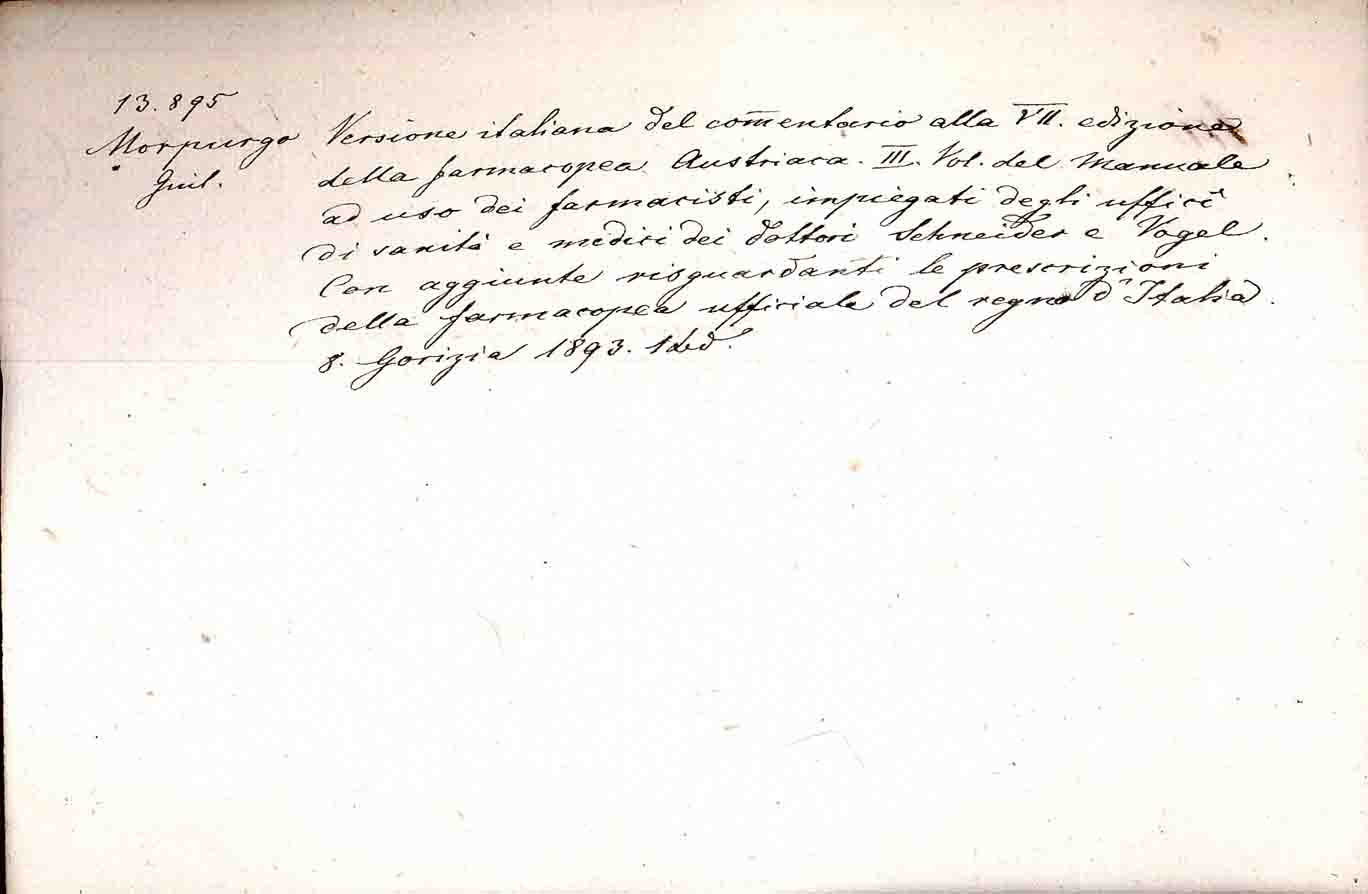 13.895
Morpurgo Versione italiana del com̅entario alla VII. edizione
Guil. della farmacopea Austriaca. III. Vol. del Manuale
ad uso dei farmacisti, impiegati degli uffici
di sanità e medici dei dottori Schneider e Vogel.
Con aggiunte risguardanti le prescrizioni
della farmacopea ufficiale del regno d'Italia.
8. Gorizia 1893.